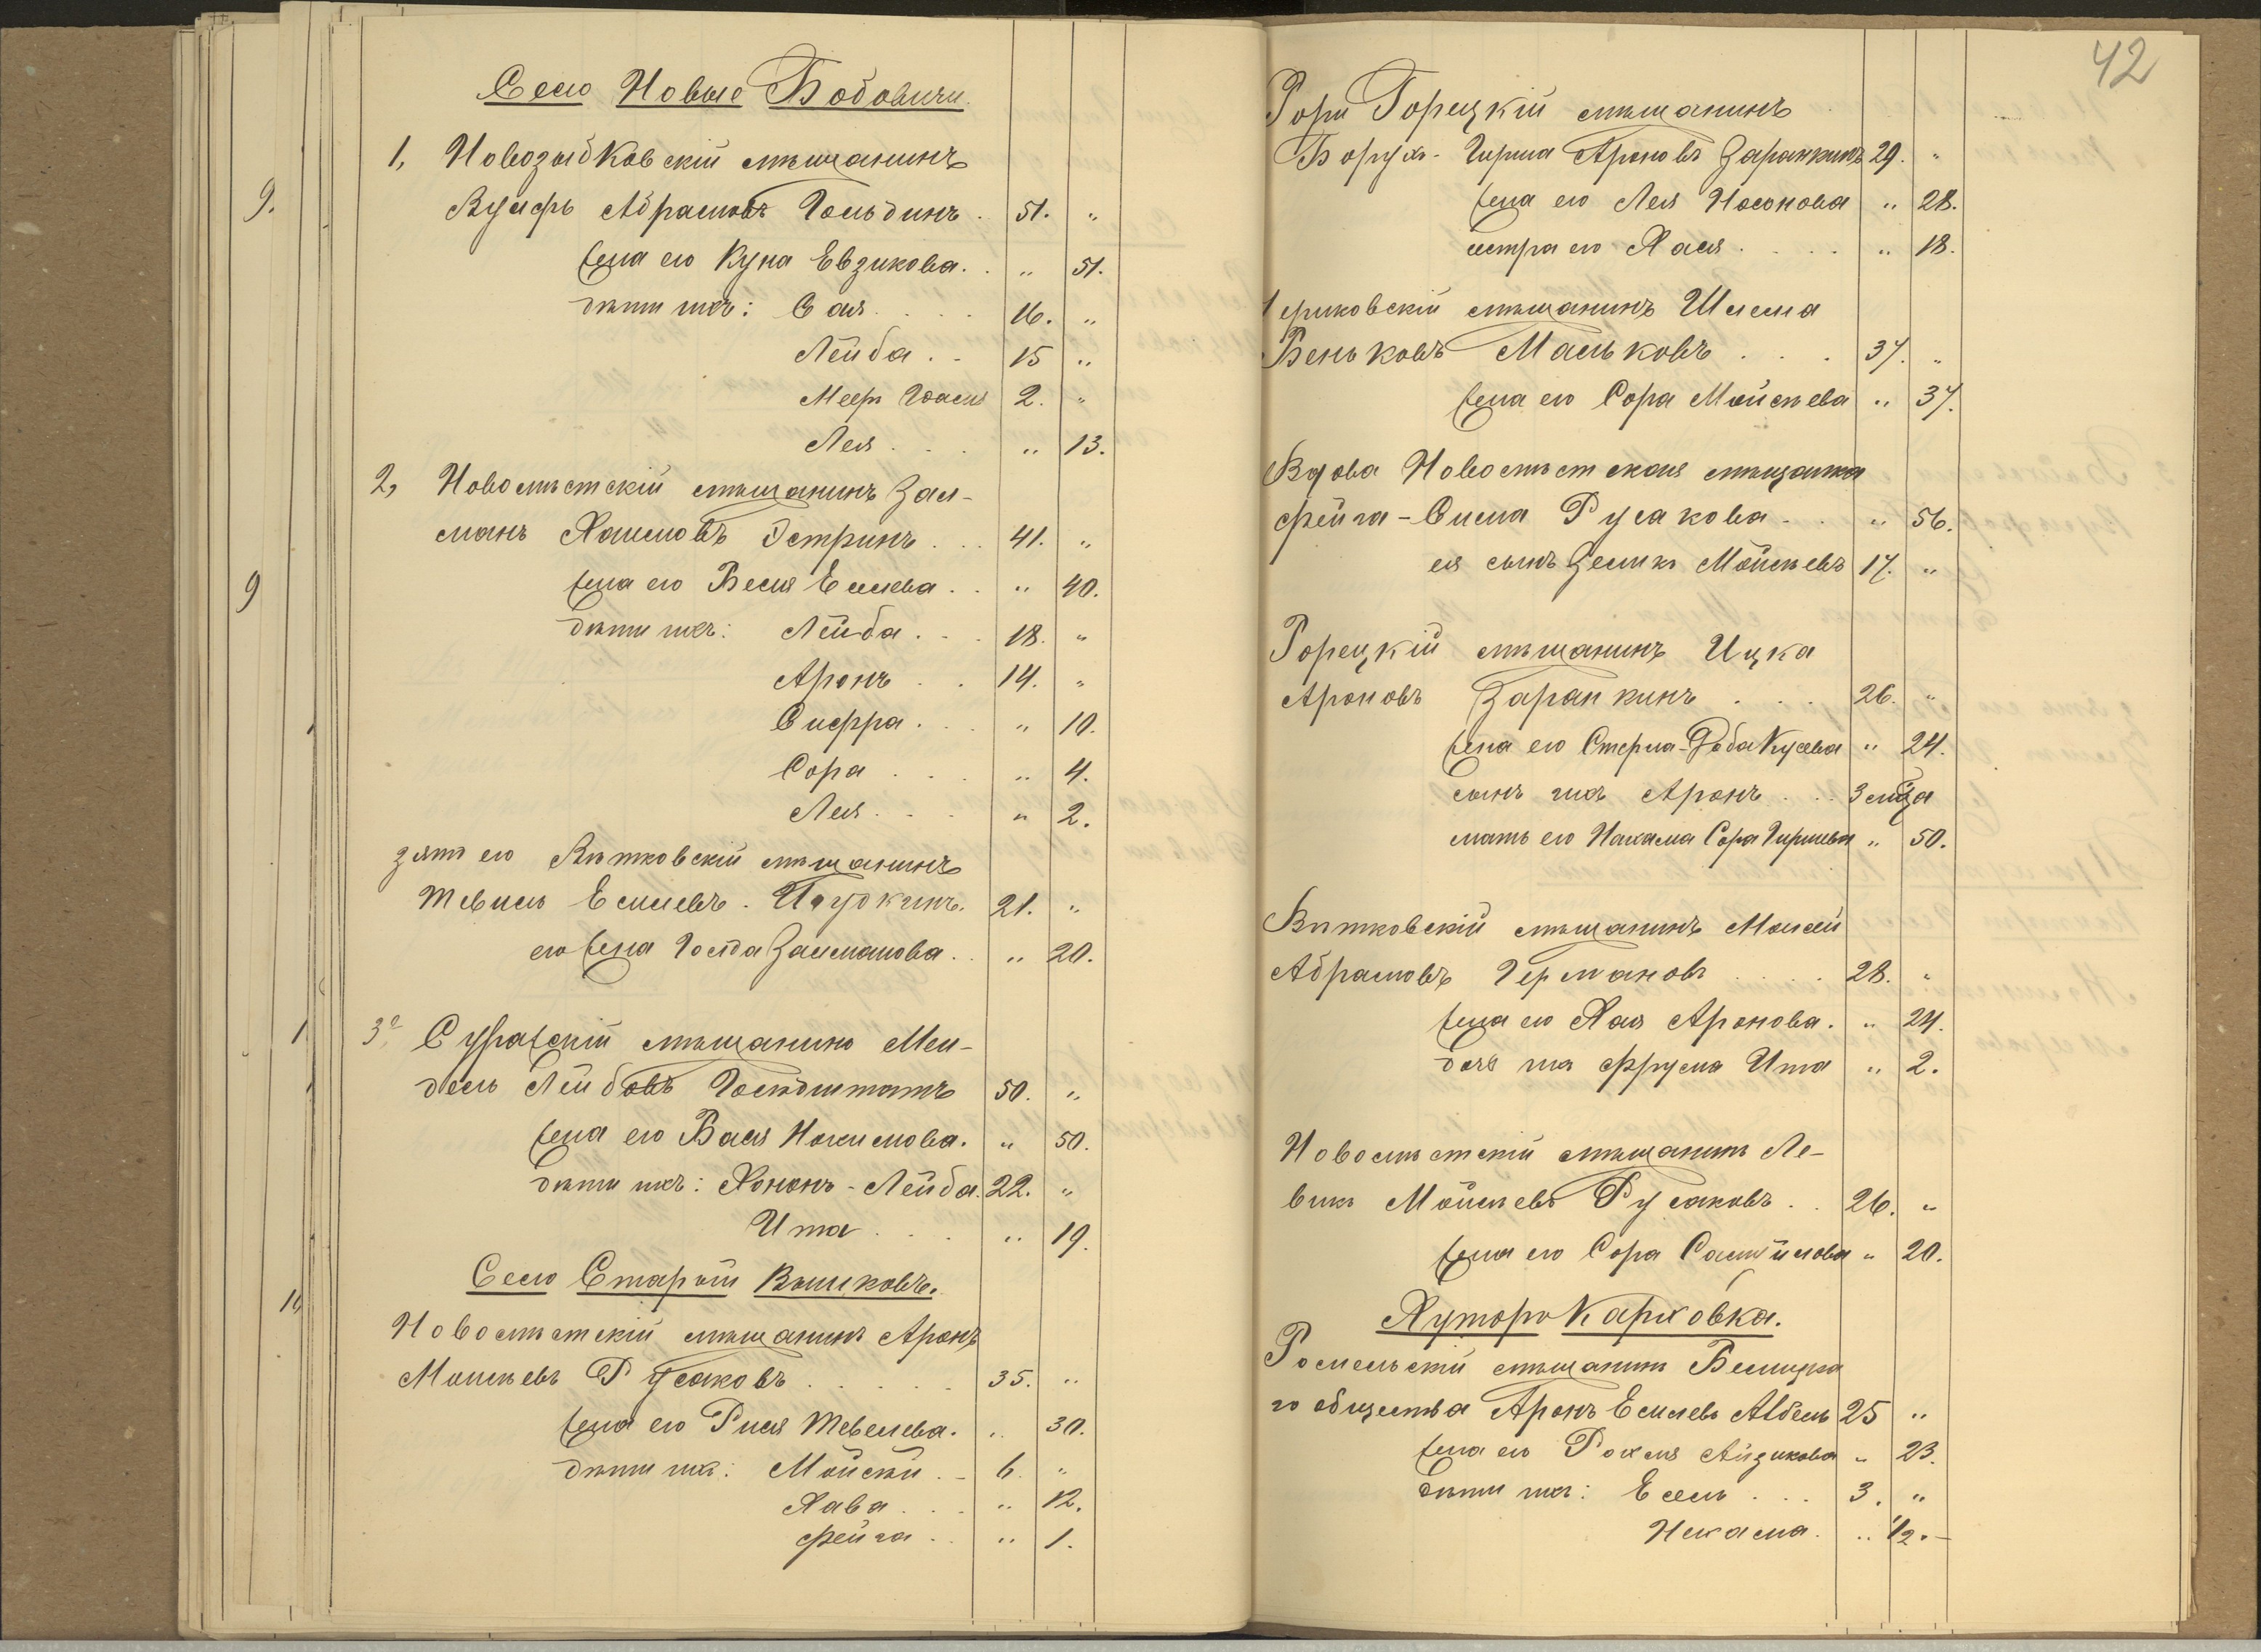 9.
9
Село Новые Бобовичи
1, Новозыбковскій мѣщанинъ
Вульфъ Абрамовъ Гольдинъ . 51. "
жена его Куна Евзикова . . " 51.
дѣти ихъ: Сая . . . . 16. "
Лейба . . 15 "
Меер 2. "
Лея . . . " 13.
2, Новомѣстскій мѣщанинъ Зал-
манъ Хаимовъ Эстринъ . . . 41. "
жена его Бася Еселева . . " 40.
дѣти ихъ: Лейба . . . 18. "
Аронъ . . 14. "
Сифра . . . " 10.
Сора . . . " 4.
Лея . . . " 2.
зять его Вѣтковскій мѣщанинъ
Тевель Еселевъ . 21. "
его жена Голда Залманова . . " 20.
3, Суражскій мѣщанинъ Мен-
дель Лейбовъ Гольдштатъ 50. "
жена его Бася Нохимова . " 50.
дѣти ихъ: Хононъ-Лейба . 22. "
Ита . . . " 19.
Село Старый Вышковъ.
Новомѣстскій мѣщанинъ Аронъ
Моисѣевъ Русаковъ . . . . . 35. "
жена его Рися Тевелева . " 30.
дѣти ихъ: Мойсѣй . . 6. "
Хава . . . " 12.
Фейга . . " 1.
42
Гори Горецкій мѣщанинъ
Борух-Гирша Ароновъ Заранкинъ 29. "
жена его Лея Носонова " 28.
сестра его Хася . . . . " 18.
Чериковскій мѣщанинъ Шлема
Беньковъ Мальковъ . . . 37. "
жена его Сора Мойсѣева " 37.
Вдова Новомѣстская мѣщанка
Фейга-Сима Русакова . . " 56.
ея сынъ Зеликъ Мойсѣевъ 17. "
Горецкій мѣщанинъ Ицка
Ароновъ Заранкинъ . . . 26. "
жена его Стерна- Кусева " 24.
сынъ ихъ Аронъ . . 3 мѣца
мать его Нахама Сора Гиршева " 50.
Вѣтковскій мѣщанинъ Моисей
Абрамовъ Германовъ . . . . 28. "
жена его Хая Аронова . " 24.
дочь ихъ Фрума Ита " 2.
Новомѣстскій мѣщанинъ Ле-
викъ Мойсѣевъ Русаковъ . . 26. "
жена его Сора Самуйлова " 20.
Хуторъ Карховка.
Гомельскій мѣщанинъ Белицка
го общества Аронъ Еселевъ 25 "
жена его Рохля Айзикова " 23.
дѣти ихъ: Есель . . . 3. "
Нехама . " 1/2. -